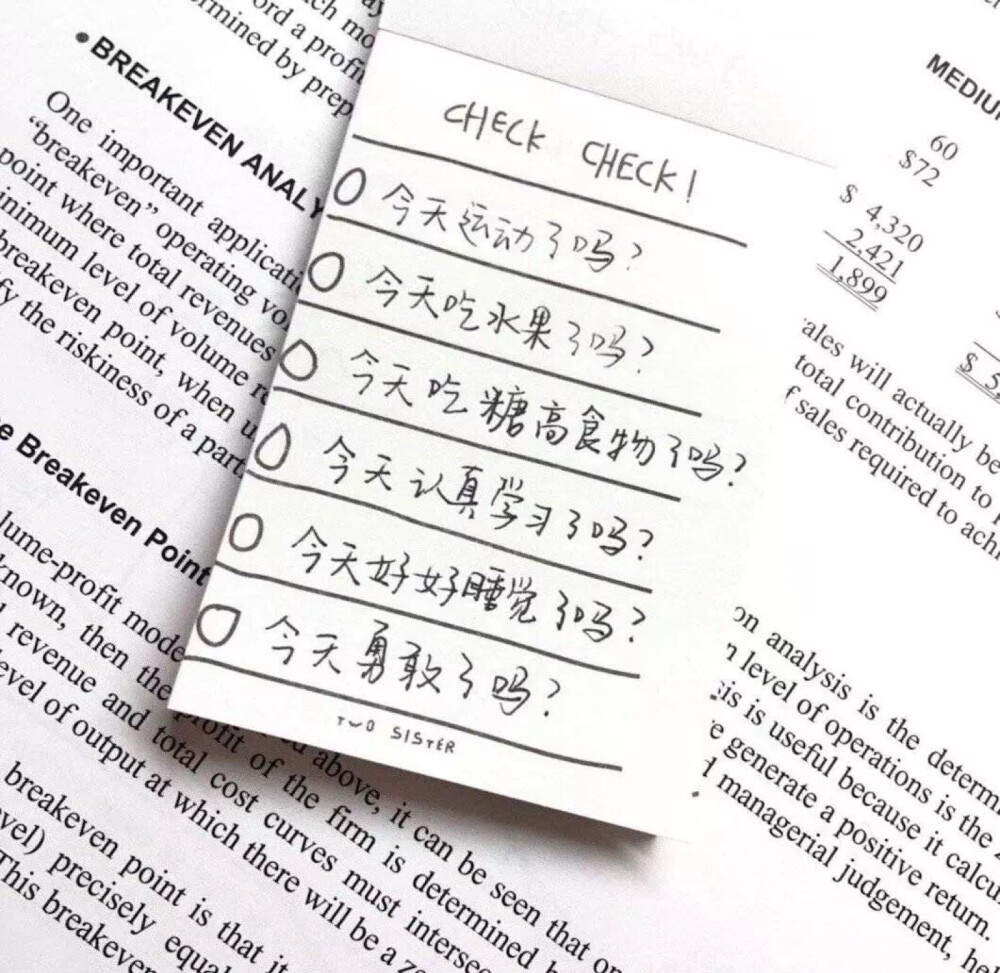 ord a profi
rmined by prep
• BREAKEVEN ANALY
One important applicati
“breakeven” operating vo
point where total revenues
nimum level of volume re
breakeven point, when u
fy the riskiness of a part
e Breakeven Point
lume-profit mode
known, then the
revenue and total cost curves must interse
evel of output at which there will be a ze
profit of the firm is determined b
above, it can be seen that
breakeven point is that it
vel) precisely equal
This breakeven
CHECK CHECK!
今天运动了吗?
今天吃水果了吗?
今天吃糖高食物了吗?
今天认真学习了吗?
今天好好睡觉了吗?
今天勇敢了吗?
TWO SISTER
MEDIU
60
$72
$ 4,320
2,421
1,899
$ 5
ales will actually be
total contribution to
sales required to achi
on analysis is the determi
level of operations is the
is is useful because it calcu
e generate a positive return.
managerial judgement, he